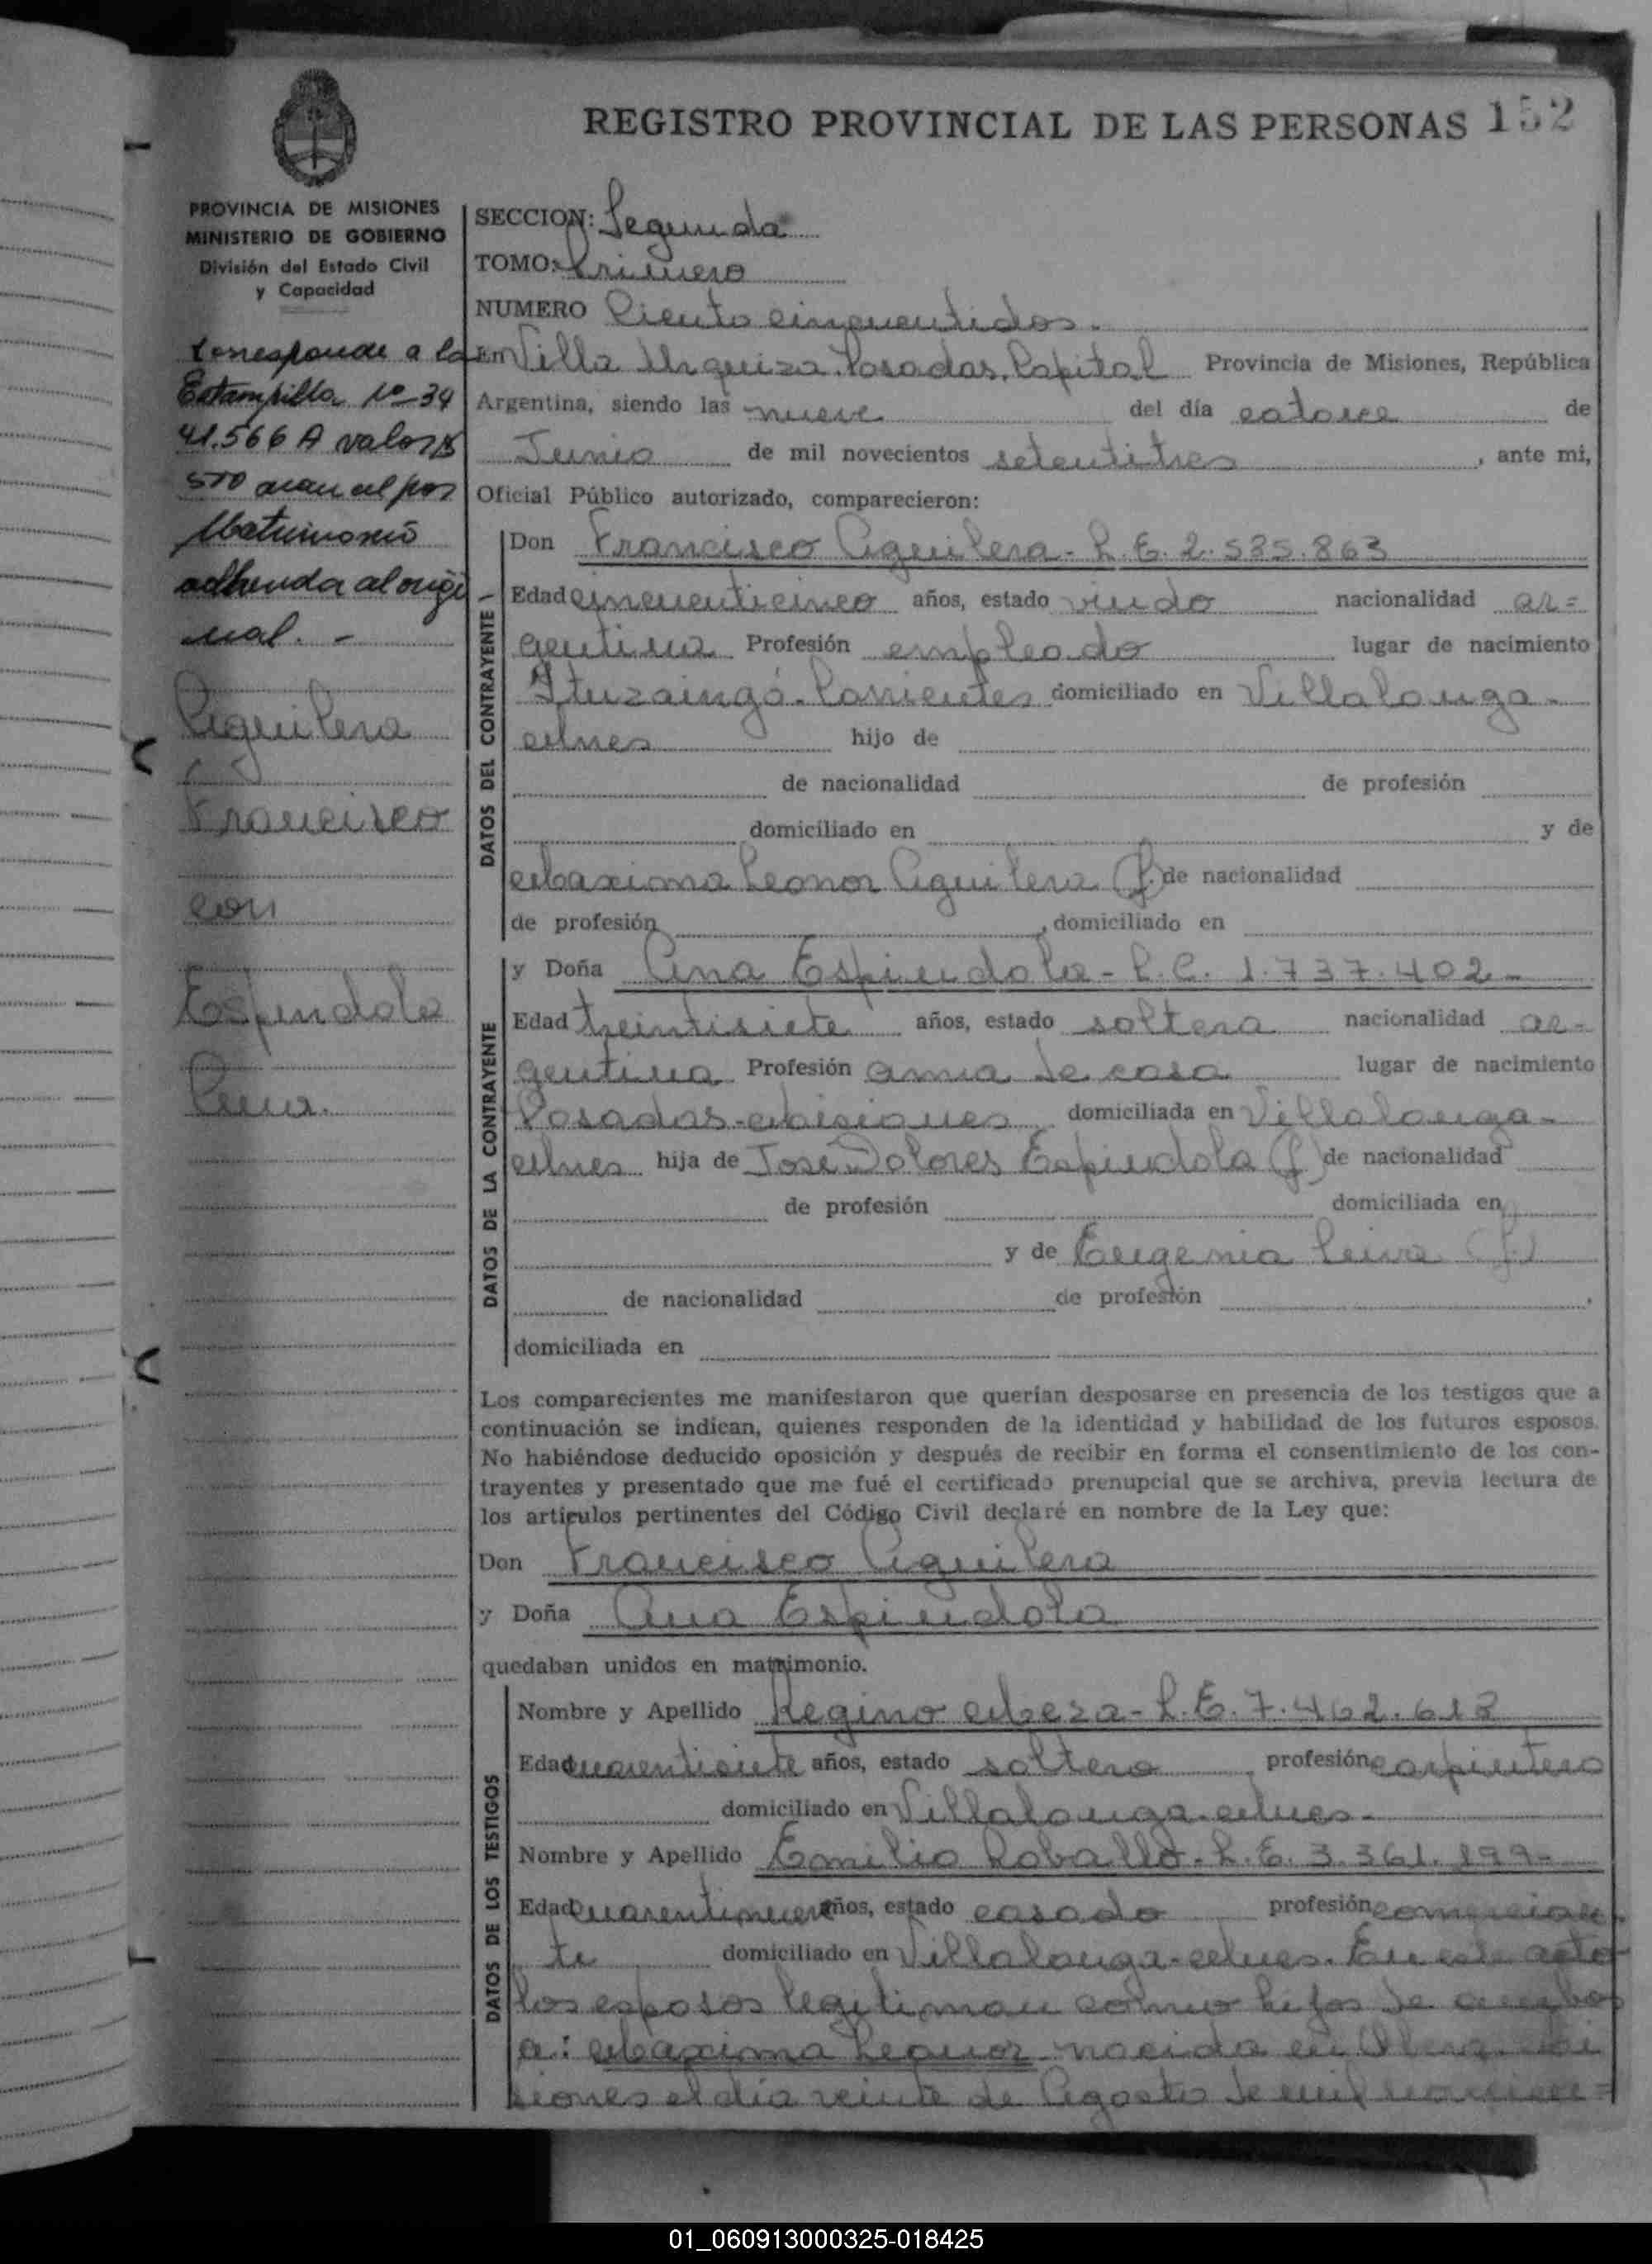 REGISTRO PROVINCIAL DE LAS PERSONAS 152
PROVINCIA DE MISIONES
MINISTERIO DE GOBIERNO
División del Estado Civil
y Capacidad
Corresponde a la
Estampilla Nº 34
41.566 A valor $
500 por
Matrimonio
adherida al origi
nal. -
Aguilera
Francisco
con
Espindola
Ana.
SECCION: Segunda
TOMO: Primero
NUMERO Ciento cincuentidos.
En Villa Urquiza. Posadas. Capital Provincia de Misiones, República
Argentina, siendo las nueve del día catorce de
Junio de mil novecientos setentitres, ante mi,
Oficial Público autorizado, comparecieron:
DATOS DEL CONTRAYENTE
Don Francisco Aguilera - L.E. 2.585.863
Edad cincuenticinco años, estado viudo nacionalidad ar=
gentina Profesión empleado lugar de nacimiento
Ituzaingó - Corrientes domiciliado en Villalonga -
Mnes hijo de
de nacionalidad de profesión
domiciliado en y de
Maxima Leonor Aguilera (f. de nacionalidad
de profesión, domiciliado en
DATOS DE LA CONTRAYENTE
y Doña Ana Espindola - L.C. 1.737.402 -
Edad treintisiete años, estado soltera nacionalidad ar-
gentina Profesión ama de casa lugar de nacimiento
Posadas - Misiones domiciliada en Villalonga -
Mnes hija de José Dolores Espindola (f) de nacionalidad
de profesión domiciliada en
y de Eugenia Leiva (f.)
de nacionalidad de profesión ,
domiciliada en
Los comparecientes me manifestaron que querían desposarse en presencia de los testigos que a
continuación se indican, quienes responden de la identidad y habilidad de los futuros esposos.
No habiéndose deducido oposición y después de recibir en forma el consentimiento de los con-
trayentes y presentado que me fué el certificado prenupcial que se archiva, previa lectura de
los artículos pertinentes del Código Civil declaré en nombre de la Ley que:
Don Francisco Aguilera
y Doña Ana Espindola
quedaban unidos en matrimonio.
DATOS DE LOS TESTIGOS
Nombre y Apellido Regino Meza - L.E. 7.462.618
Edad cuarentisiete años, estado soltero profesión carpintero
domiciliado en Villalonga - Mnes -
Nombre y Apellido Emilio Roballo - L.E. 3.361.199 -
Edad cuarentinueve años, estado casado profesión comercian
te domiciliado en Villalonga - Mnes. En este acto
los esposos legitiman como hijos de ambos
a: Maxima Leonor nacida en Oberá - Mi
siones el dia veinte de Agosto de mil novecien=
01_060913000325-018425